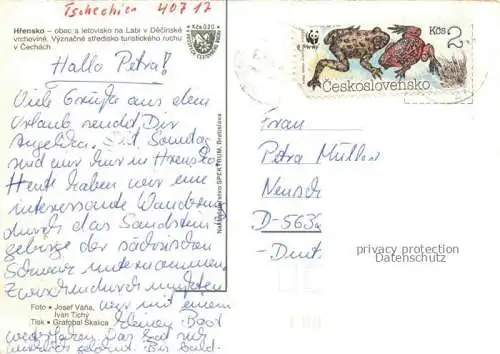 Tschechien 40717
Hřensko – obec a letovisko na Labi v Děčínské
vrchovině. Význačné středisko turistického ruchu
v Čechách
Hallo Petra!
Viele Grüße aus dem
Urlaub sendet Dir
Angelika. Seit Samstag
sind wir hier in Hrensko.
Heute haben wir eine
interessante Wanderung
durch das Sandstein
gebirge der sächsischen
Schweiz unternommen.
Zwischendurch mußten
wir mit einem
kleinen Boot
Das hat
Bis bald
Foto • Josef Váňa,
Ivan Tichý
Tisk • Grafobal Skalica
Nakladatelstvo SPEKTRUM, Bratislava
Kčs 0,20
WWF
Kčs 2
Československo
Frau
Petra Müller
D-563
privacy protection
Datenschutz